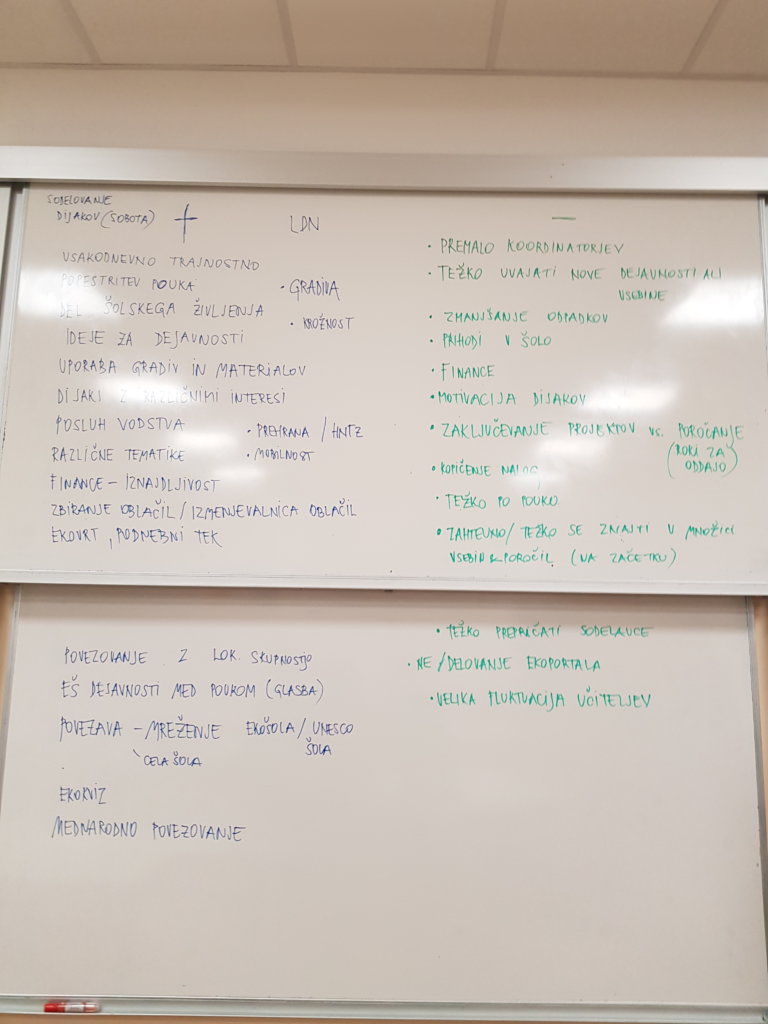 SODELOVANJE
DIJAKOV (SOBOTA)
+
LDN
VSAKODNEVNO TRAJNOSTNO
POPESTRITEV POUKA
DEL ŠOLSKEGA ŽIVLJENJA
IDEJE ZA DEJAVNOSTI
UPORABA GRADIV IN MATERIALOV
DIJAKI Z RAZLIČNIMI INTERESI
POSLUH VODSTVA
RAZLIČNE TEMATIKE
FINANCE – IZNAJDLJIVOST
ZBIRANJE OBLAČIL / IZMENJEVALNICA OBLAČIL
EKOVRT, PODNEBNI TEK
• GRADIVA
• KROŽNOST
• PREHRANA / HNTZ
• MOBILNOST
POVEZOVANJE Z LOK. SKUPNOSTJO
EŠ DEJAVNOSTI MED POUKOM (GLASBA)
POVEZAVA – MREŽENJE EKOŠOLA / UNESCO
ŠOLA
CELA ŠOLA
EKOKVIZ
MEDNARODNO POVEZOVANJE
–
• PREMALO KOORDINATORJEV
• TEŽKO UVAJATI NOVE DEJAVNOSTI ALI
VSEBINE
• ZMANJŠANJE ODPADKOV
• PRIHODI V ŠOLO
• FINANCE
• MOTIVACIJA DIJAKOV
• ZAKLJUČEVANJE PROJEKTOV vs. POROČANJE
(ROKI ZA
ODDAJO)
• KOPIČENJE NALOG
• TEŽKO PO POUKU
• ZAHTEVNO / TEŽKO SE ZNAJTI V MNOŽICI
VSEBIN & POROČIL (NA ZAČETKU)
• TEŽKO PREPRIČATI SODELAVCE
• NE / DELOVANJE EKOPORTALA
• VELIKA FLUKTUACIJA UČITELJEV